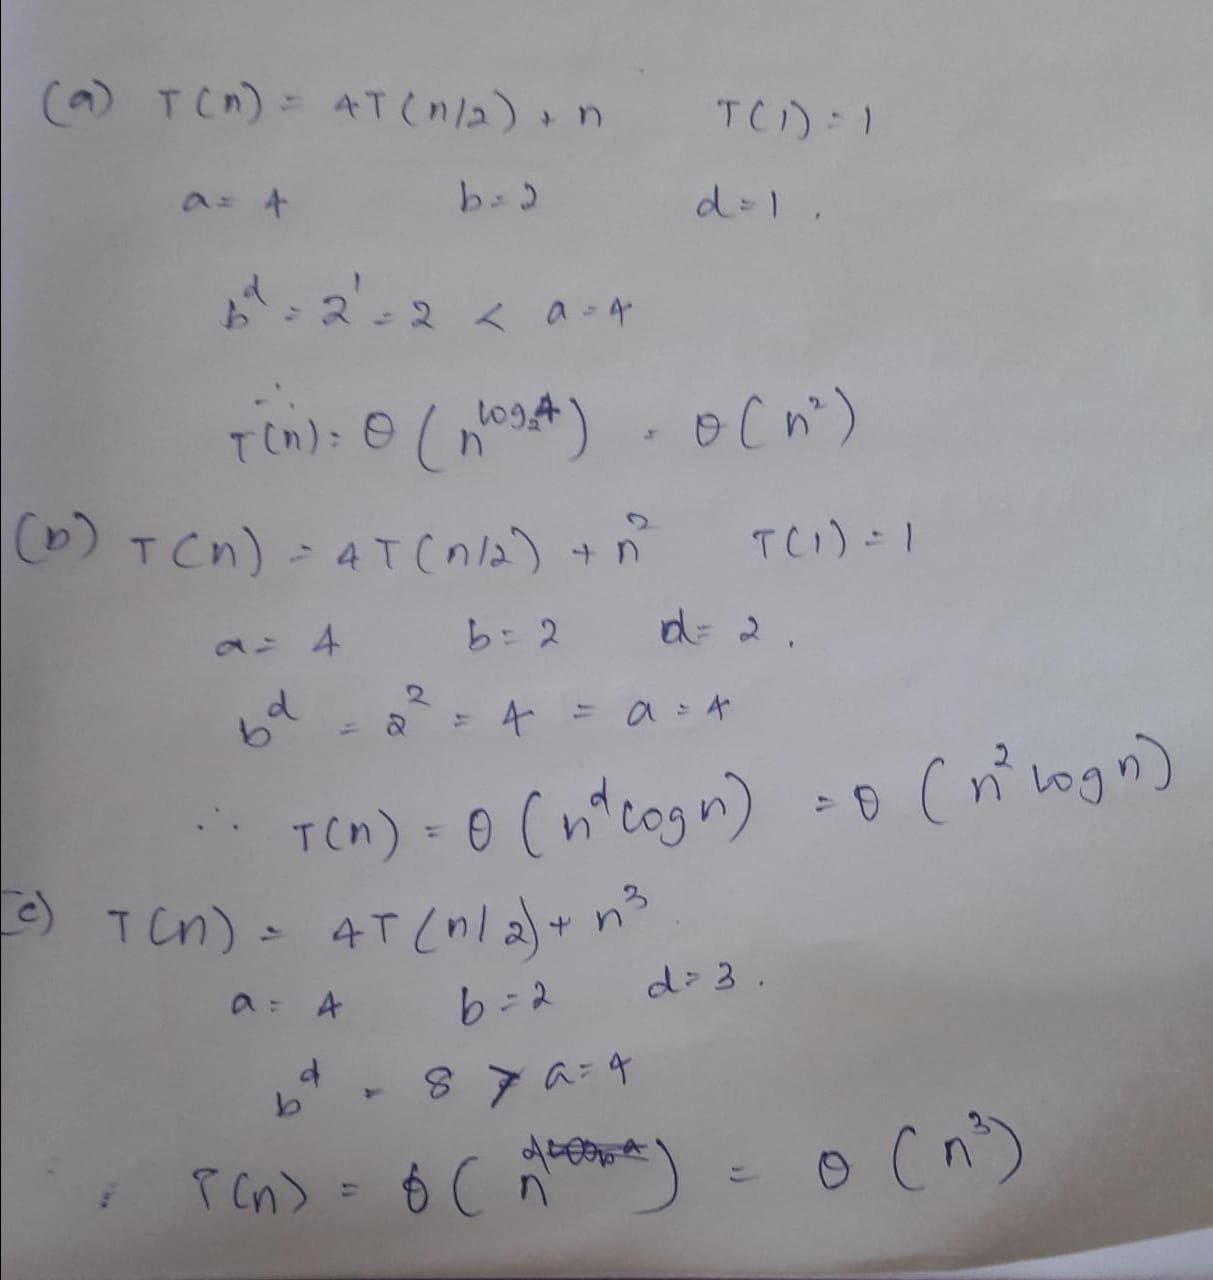 (a) T(n) = 4T(n/2) + n T(1) = 1
a = 4 b = 2 d = 1.
b^d = 2^1 = 2 < a = 4
∴ T(n) = θ(n^log₂4) = θ(n²)
(b) T(n) = 4T(n/2) + n² T(1) = 1
a = 4 b = 2 d = 2.
b^d = 2² = 4 = a = 4
∴ T(n) = θ(n^d log n) = θ(n² log n)
(c) T(n) = 4T(n/2) + n³
a = 4 b = 2 d = 3.
b^d = 8 > a = 4
∴ T(n) = θ(n^d) = θ(n³)